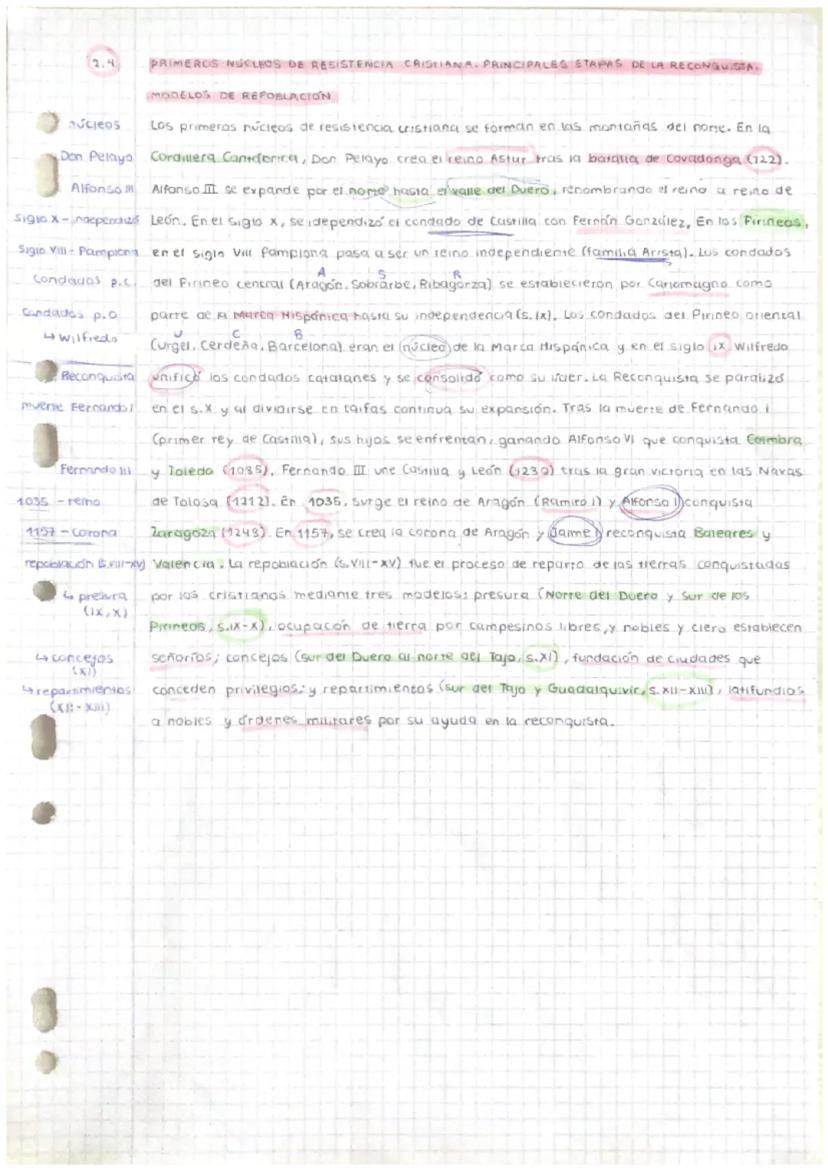 2.4 PRIMEROS NÚCLEOS DE RESISTENCIA CRISTIANA. PRINCIPALES ETAPAS DE LA RECONQUISTA.
MODELOS DE REPOBLACIÓN
núcleos Los primeros núcleos de resistencia cristiana se forman en las montañas del norte. En la
Don Pelayo Cordillera Cantábrica, Don Pelayo crea el reino Astur tras la batalla de Covadonga (722).
Alfonso III Alfonso III se expande por el norte hasta el valle del Duero, renombrando el reino a reino de
Siglo X - independiza León. En el siglo X, se independizó el condado de Castilla con Fernán González. En los Pirineos,
Siglo VIII - Pamplona en el siglo VIII Pamplona pasa a ser un reino independiente (familia Arista). Los condados
A S R
Condados p.c. del Pirineo central (Aragón, Sobrarbe, Ribagorza) se establecieron por Carlomagno como
Condados p.o parte de la Marca Hispánica hasta su independencia (s. IX). Los condados del Pirineo oriental
U C B
↳ Wilfredo (Urgel, Cerdeña, Barcelona) eran el núcleo de la Marca Hispánica y en el siglo IX Wilfredo
Reconquista unificó los condados catalanes y se consolidó como su líder. La Reconquista se paralizó
muerte Fernando I en el s.X y al dividirse en taifas continua su expansión. Tras la muerte de Fernando I
(primer rey de Castilla), sus hijos se enfrentan, ganando Alfonso VI que conquista Coimbra
Fernando III y Toledo (1085). Fernando III une Castilla y León (1230) tras la gran victoria en las Navas
1035 - reino de Tolosa (1212). En 1035, surge el reino de Aragón (Ramiro I) y Alfonso I conquista
1157 - Corona Zaragoza (1248). En 1157, se crea la corona de Aragón y Jaime I reconquista Baleares y
repoblación (s.VIII-XV) Valencia. La repoblación (s. VIII-XV) fue el proceso de reparto de las tierras conquistadas
↳ presura por los cristianos mediante tres modelos: presura (Norte del Duero y Sur de los
(IX, X)
Pirineos, s.IX-X), ocupación de tierra por campesinos libres, y nobles y clero establecen
↳ concejos señoríos; concejos (sur del Duero al norte del Tajo, s.XI), fundación de ciudades que
(XI)
↳ repartimientos conceden privilegios; y repartimientos (sur del Tajo y Guadalquivir, s. XII-XIII), latifundios
(XII - XIII)
a nobles y órdenes militares por su ayuda en la reconquista.